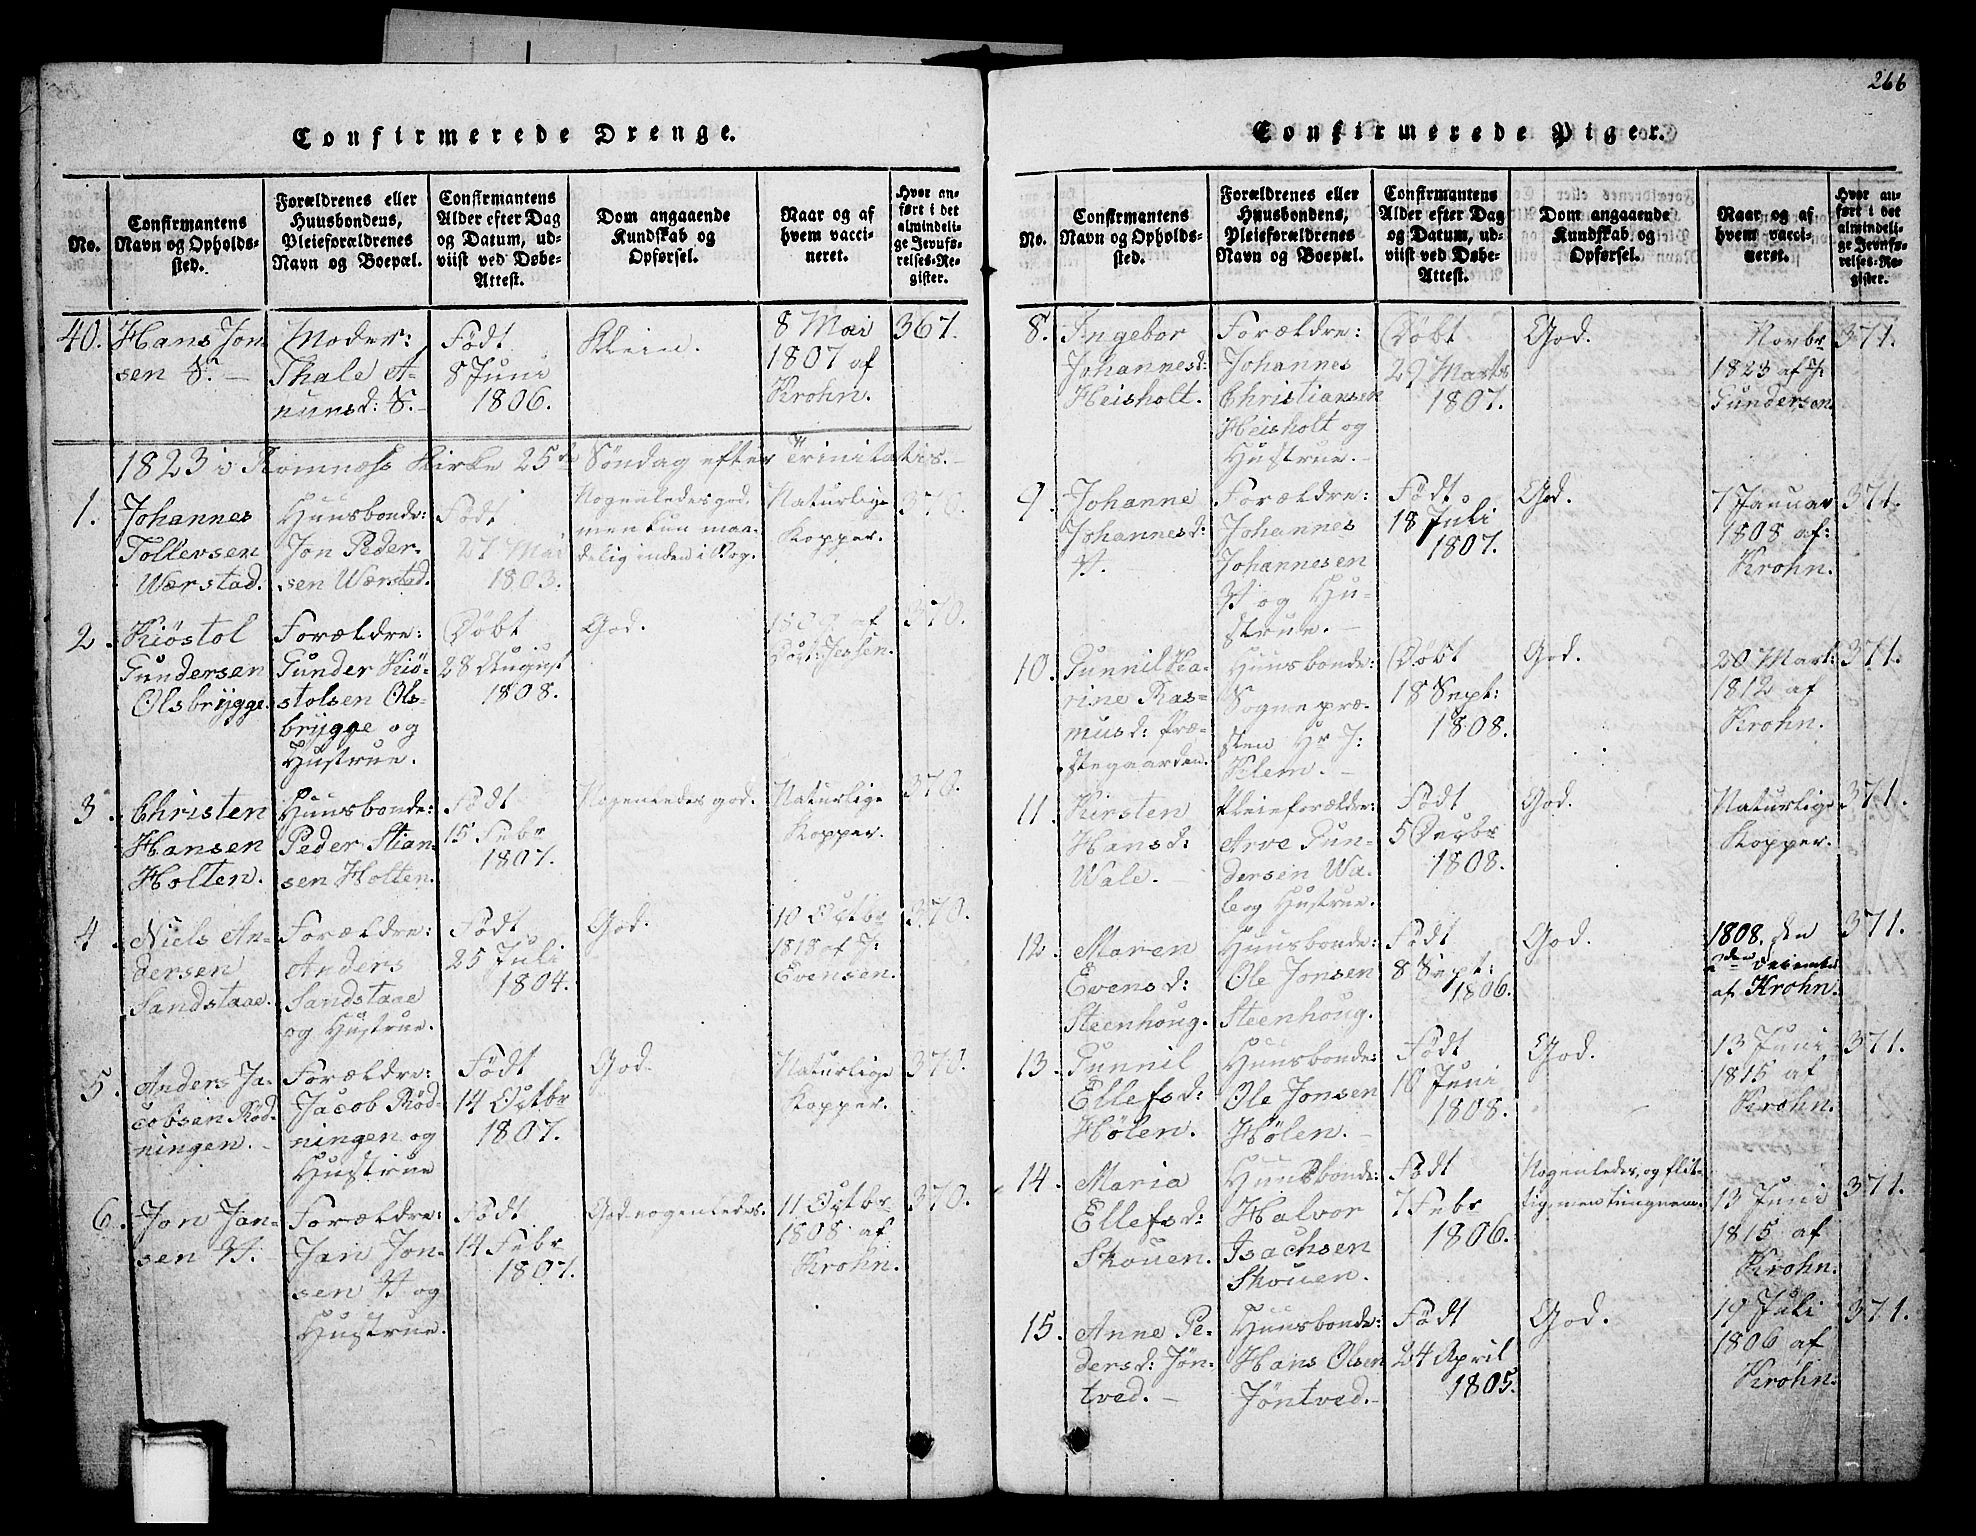 266
Confirmerede Drenge.
No.
Confirmantens
Navn og Opholds-
sted.
Forældrenes eller
Huusbondens,
Pleieforældrenes
Navn og Boepæl.
Confirmantens
Alder efter Dag
og Datum, ud-
viist ved Døbe-
Attest.
Dom angaaende
Kundskab og
Opførsel.
Naar og af
hvem vacci-
neret.
Hvor an-
ført i det
almindeli-
ge Jevnfø-
relses-Re-
gister.
40.
Hans Jon
sen
Moder:
Thale A-
nunsd:
Født
8 Juni
1806.
Klein.
8 Mai
1807 af
Krohn.
367.
1823 i Romnæss Kirke 25de Søndag efter Trinitatis.
1.
Johannes
Tollevsen
Værstad.
Huusbonde:
Jon Peder-
sen Værstad.
Født
27 Mai
1803.
Nogenledes god.
men kun maa-
delig inden i Bog.
Naturlige
Kopper.
370.
2.
Kiøstol
Gundersen
Olsbrygge.
Forældre:
Gunder Kiø-
stolsen Ols-
brygge og
Hustrue.
Døbt
28 August
1808.
God.
af
370.
3.
Christen
Hansen
Holten.
Huusbonde:
Peder Stian-
sen Holten.
Født
15 Febr
1807.
Nogenledes god.
Naturlige
Kopper.
370.
4.
Niels An-
dersen
Sandstaae.
Forældre:
Anders
Sandstaae
og Hustrue.
Født
25 Juli
1804.
God.
10 Octbr
1818 af J:
Evensen.
370.
5.
Anders Ja-
cobsen Rød-
ningen.
Forældre:
Jacob Rød-
ningen og
Hustrue
Født
14 Octbr
1807.
God.
Naturlige
Kopper.
370.
6.
Jon Jan-
sen V.
Forældre:
Jan Jon-
sen V og
Hustrue.
Født
14 Febr
1807.
God nogenledes.
11 Octbr
1808 af
Krohn.
370.
Confirmerede Piger.
No.
Confirmantens
Navn og Opholds-
sted.
Forældrenes eller
Huusbondens,
Pleieforældrenes
Navn og Boepæl.
Confirmantens
Alder efter Dag
og Datum, ud-
viist ved Døbe-
Attest.
Dom angaaende
Kundskab og
Opførsel.
Naar og af
hvem vacci-
neret.
Hvor an-
ført i det
almindeli-
ge Jevnfø-
relses-Re-
gister.
8.
Ingebor
Johannesd:
Heisholt.
Forældre:
Johannes
Christiansen
Heisholt og
Hustrue.
Døbt
29 Marts
1807.
God.
Novbr
1823 af J.
Gundersen.
371.
9.
Johanne
Johannesd:
V.
Forældre:
Johannes
Johannesen
V og Hu-
strue.
Født
18 Juli
1807.
God.
7 Januar
1808 af:
Krohn.
371.
10.
Gunnil Ka-
rine Ras-
musd: Præ-
stegaarden.
Huusbonde:
Sognepræ-
sten Hr J:
Klem.
Døbt
18 Sept:
1808.
God.
20 Mart:
1812 af
Krohn.
371.
11.
Kirsten
Hansd:
Wale.
Pleieforældre:
Arve Gun-
dersen Wa-
le og Hustrue.
Født
5 Decbr
1808.
God.
Naturlige
Kopper.
371.
12.
Maren
Evensd:
Steenhoug.
Huusbonde:
Ole Jonsen
Steenhoug.
Født
8 Sept:
1806.
God.
1808. den
December
af Krohn.
371.
13.
Gunnil
Ellefsd:
Hølen.
Huusbonde:
Ole Jonsen
Hølen.
Født
10 Juni
1808.
God.
13 Juni
1815 af
Krohn.
371.
14.
Maria
Ellefsd:
Skouen.
Huusbonde:
Halvor
Isachsen
Skouen.
Født
7 Febr
1806.
Nogenledes, og flit-
tig, men tungnem.
13 Juni
1815 af
Krohn.
371.
15.
Anne Pe-
dersd: Jøn-
tved.
Huusbonde:
Hans Olsen
Jøntved.
Født
24 April
1805.
God.
19 Juli
1806 af
Krohn.
371.